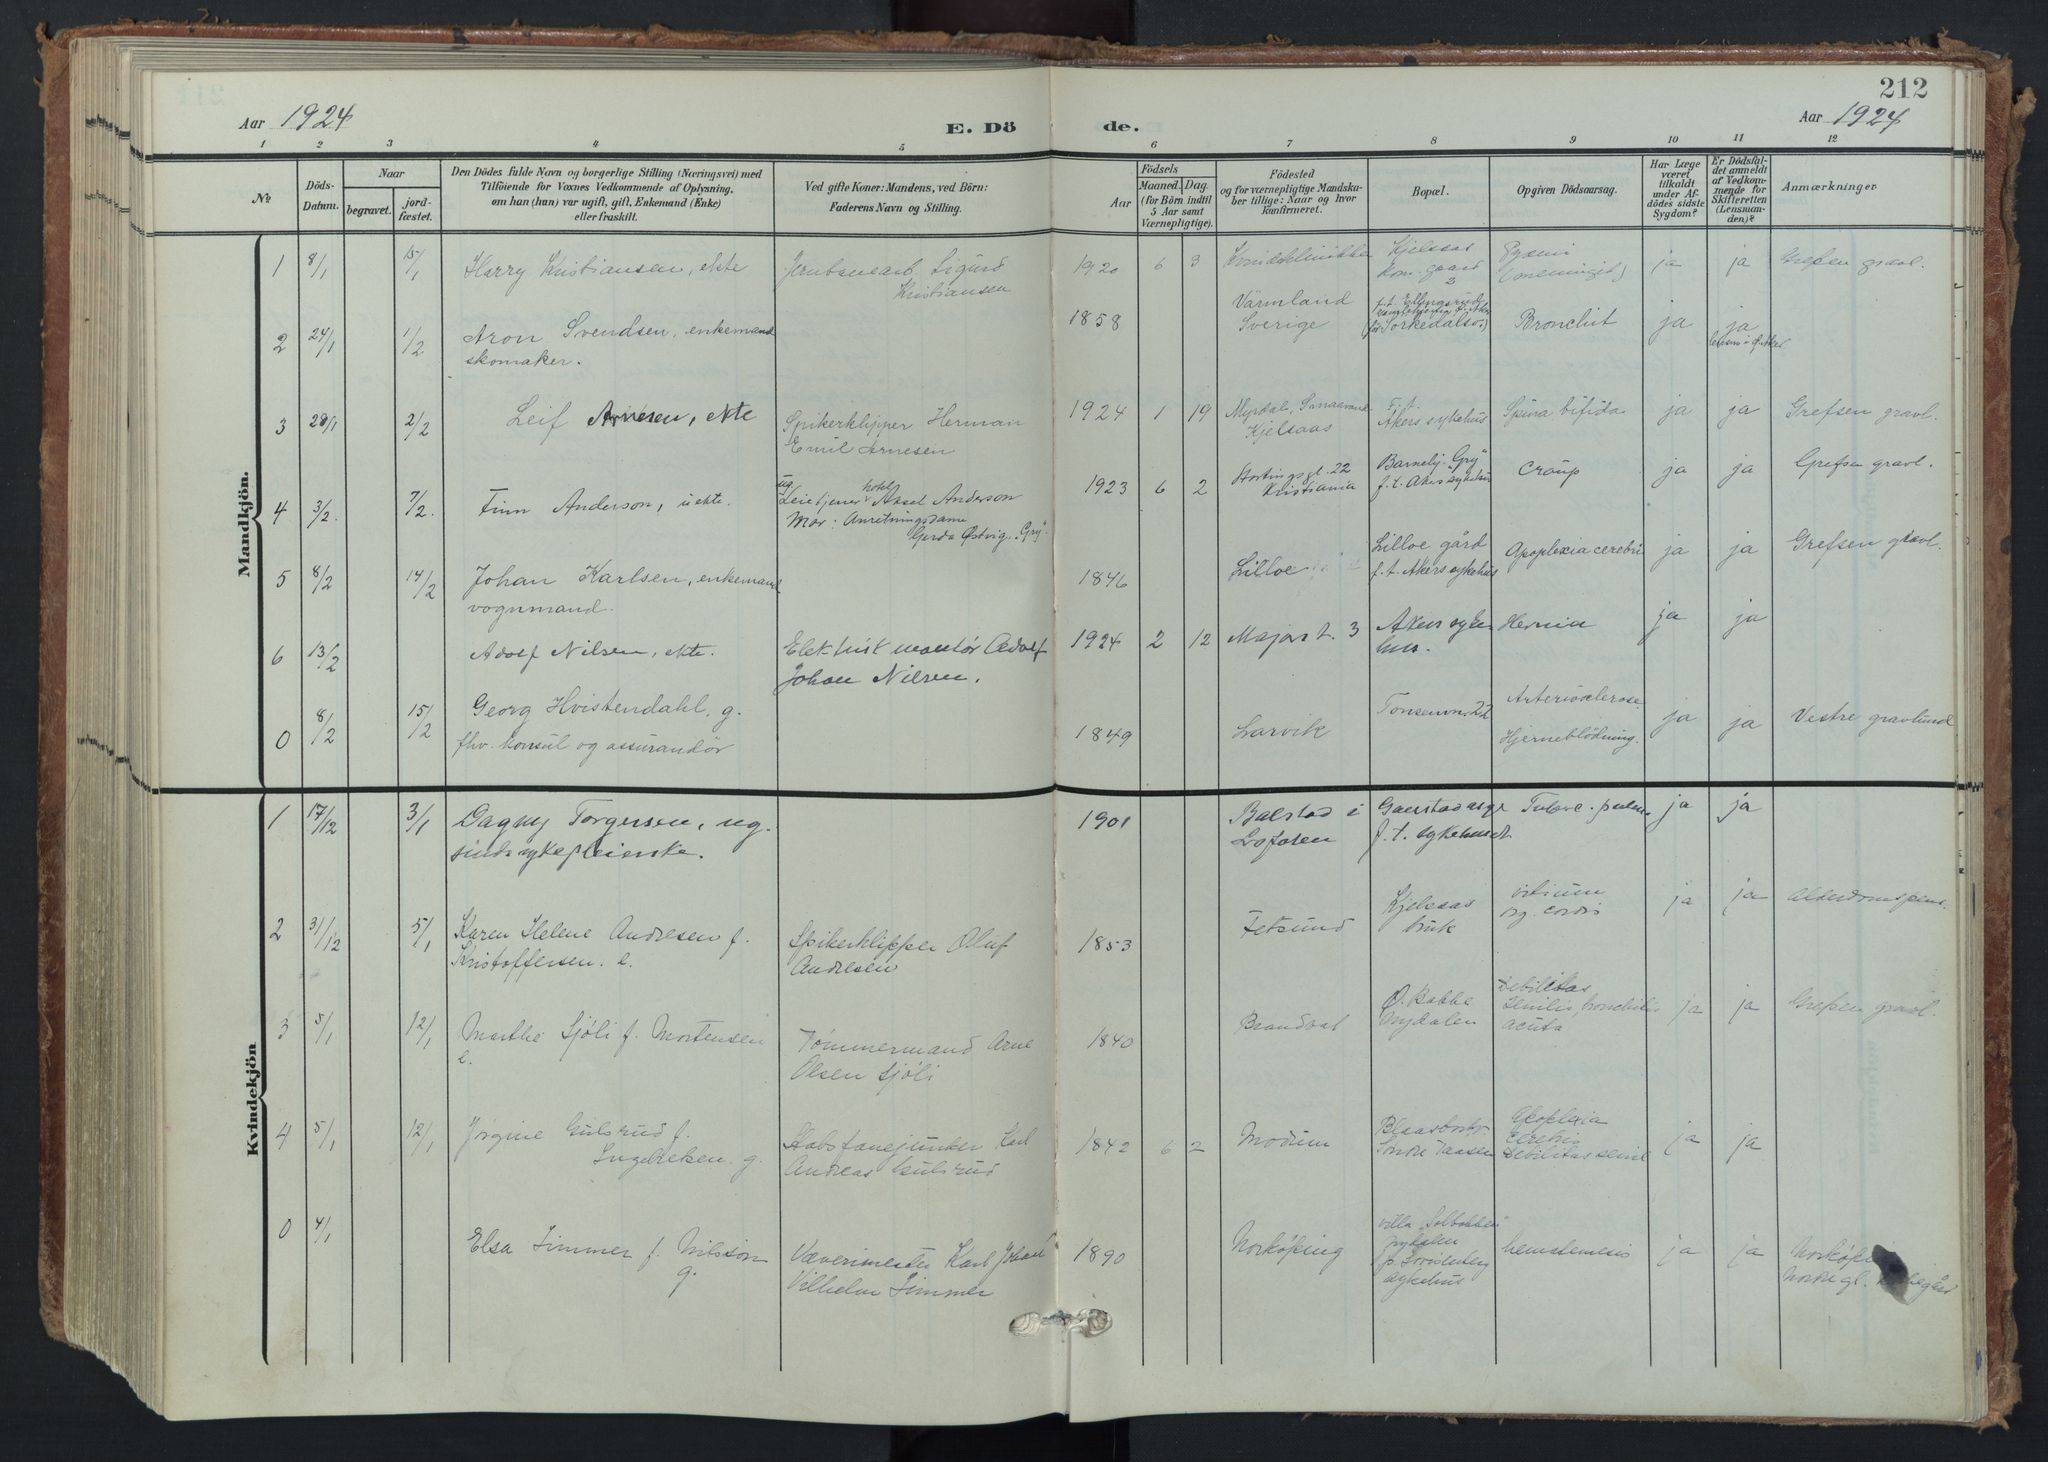 212
Aar 1924
E. Dö
de.
Aar 1924
1 2 3 4 5 6 7 8 9 10 11 12
No
Döds-
Datum.
Naar
begravet.
jord-
fæstet.
Den Dödes fulde Navn og borgerlige Stilling (Næringsvei) med
Tilföiende for Voxnes Vedkommende af Oplysning,
om han (hun) var ugift, gift, Enkemand (Enke)
eller fraskilt.
Ved gifte Koner: Mandens, ved Börn:
Faderens Navn og Stilling.
Födsels
Aar
Maaned. Dag.
(for Börn indtil
5 Aar samt
Værnepligtige).
Födested
og for værnepligtige Mandska-
ber tillige: Naar og hvor
konfirmeret.
Bopæl.
Opgiven Dödsaarsag.
Har Læge
været
tilkaldt
under Af-
dödes sidste
Sygdom?
Er Dödsfal-
det anmeldt
af Vedkom-
mende for
Skifteretten
(Lensman-
den)?
Anmærkninger
Mandkjön.
1 8/1 15/1 Harry Kristiansen, ekte
Sigurd
Kristiansen
1920 6 3 Kvindeklinikken
Kjelsaas
ja ja Grefsen gravl.
2 24/1 1/2 Aron Svendsen, enkemand
skomaker.
1858
Värmland
Sverige
Bronchit ja ja
3 28/1 2/2 Leif Arnesen, ekte
Spikerklipper Herman
Emil Arnesen
1924 1 19
Kjelsaas
F. t.
Akers sykehus
Spina bifida ja ja Grefsen gravl.
4 3/2. 7/2. Finn Anderson, uekte.
Aksel Anderson
Mor: Anretningsdame
Gerda Østvig. "Gry"
1923 6 2
Stortingsgt. 22
Kristiania
Barnehj. "Gry"
f. t. Akers sykehus
Croup ja ja Grefsen gravl.
5 8/2 14/2 Johan Karlsen, enkemand
vognmand.
1846 Lilloe
Lilloe gård
f. t. Akers sykehus
Apoplexia cerebri ja ja Grefsen gravl.
6 13/2 Adolf Nilsen, ekte.
Elektrisk montør Adolf
Johan Nilsen.
1924 2 12 Majorst. 3
Akers syke
hus.
Hernia ja ja
0 8/2 15/2 Georg Hvistendahl, g.
fhv. konsul og assurandør
1849 Larvik
Tonsenvn. 22
Arteriosclerose
Hjerneblödning.
ja ja Vestre gravlund
Kvindekjön
1 17/12 3/1 Dagny Torgersen, ug.
sindssykepleierske.
1901
Balstad i
Lofoten
f. t. sykehuset
Tuberc. pulm. ja ja
2 31/12 5/1 Karen Helene Andresen f.
Kristoffersen. e.
Spikerklipper Oluf
Andresen
1853 Fetsund
Kjelsaas
bruk
vitium
org. cordis
ja ja Alderdomspens.
3 5/1 12/1 Marthe Sjöli f. Mortensen
e.
Tömmermand Arne
Olsen Sjöli
1840 Brandval
Nydalen
Debilitas
senilis, bronchitis
acuta
ja ja Grefsen gravl.
4 5/1 12/1 Jörgine Gulsrud f.
g.
Stabsfanejunker Karl
Andreas Gulsrud
1842 6 2 Modum
Söndre Taasen
Apoplexia
cerebri
Debilitas senil
ja ja
0 4/1 Elsa Simmer f. Nilsson
g.
Væverimester Karl Johan
Vilhelm Simmer
1890 Norköping
villa "Solbakken"
Nydalen
sykehus
hemetemesis ja ja
Norköpi
Norre gl.